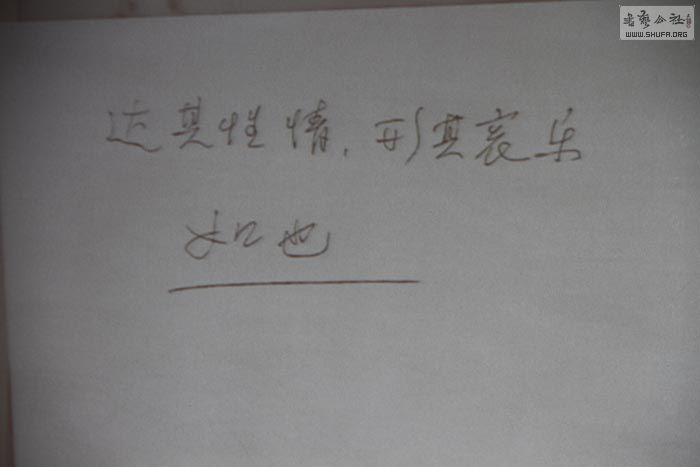 书艺公社
WWW.SHUFA.ORG
达其性情,形其哀乐
如也